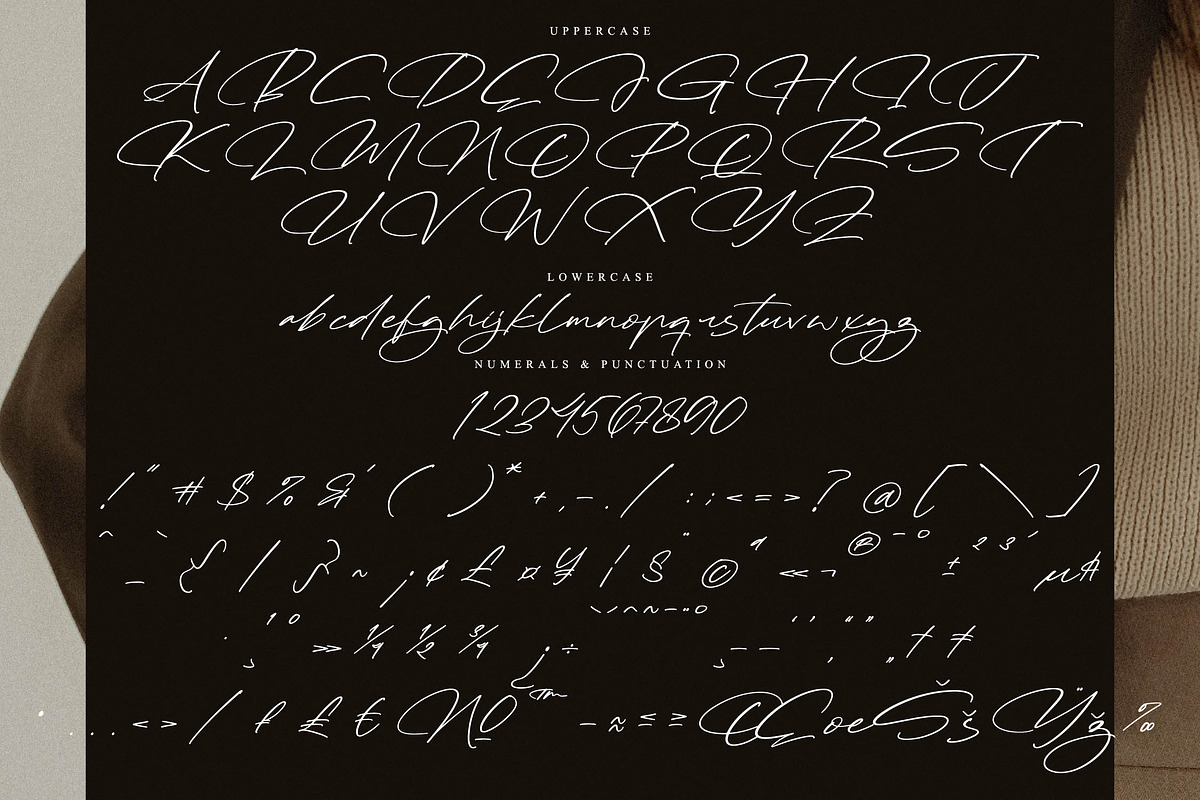 UPPERCASE
A B C D E F G H I J
K L M N O P Q R S T
U V W X Y Z
LOWERCASE
a b c d e f g h i j k l m n o p q r s t u v w x y z
NUMERALS & PUNCTUATION
1 2 3 4 5 6 7 8 9 0
! " # $ % & ' ( ) * + , - . / : ; < = > ? @ [ \ ]
^ _ ` { | } ~ ¡ ¢ £ ¤ ¥ ¦ § ¨ © ª « ¬ ® ¯ ° ± ² ³ ´ µ ¶
· ¸ ¹ º » ¼ ½ ¾ ¿ ÷ – — ‘ ’ ‚ “ ” „ † ‡
• … ‹ › ⁄ ƒ ₤ € № ™ − ≈ ≤ ≥ Œ œ Š š Ÿ ž ‰